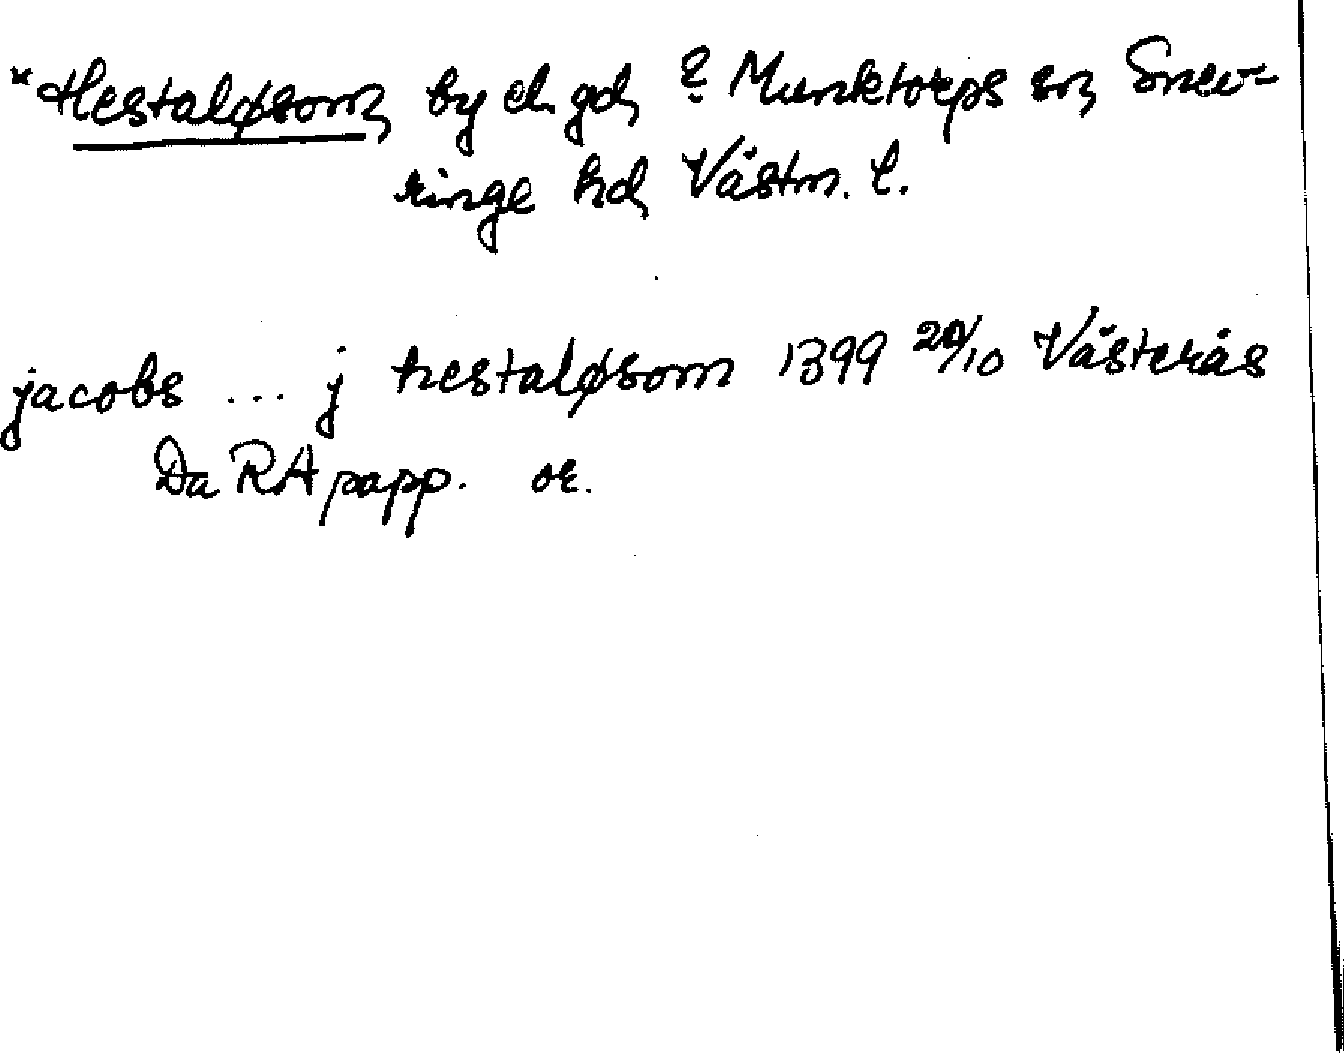 *Hestaløsom, by el. gd, ? Munktorps sn, Snev-
ringe hd, Västm. l.
jacobs ... j hestaløsom 1399 20/10 Västerås
Da RA papp. or.